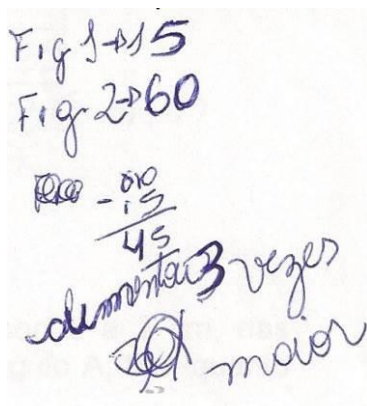 Fig 1→15
Fig. 2→60
- 60
15
45
aumentar 3 vezes
maior